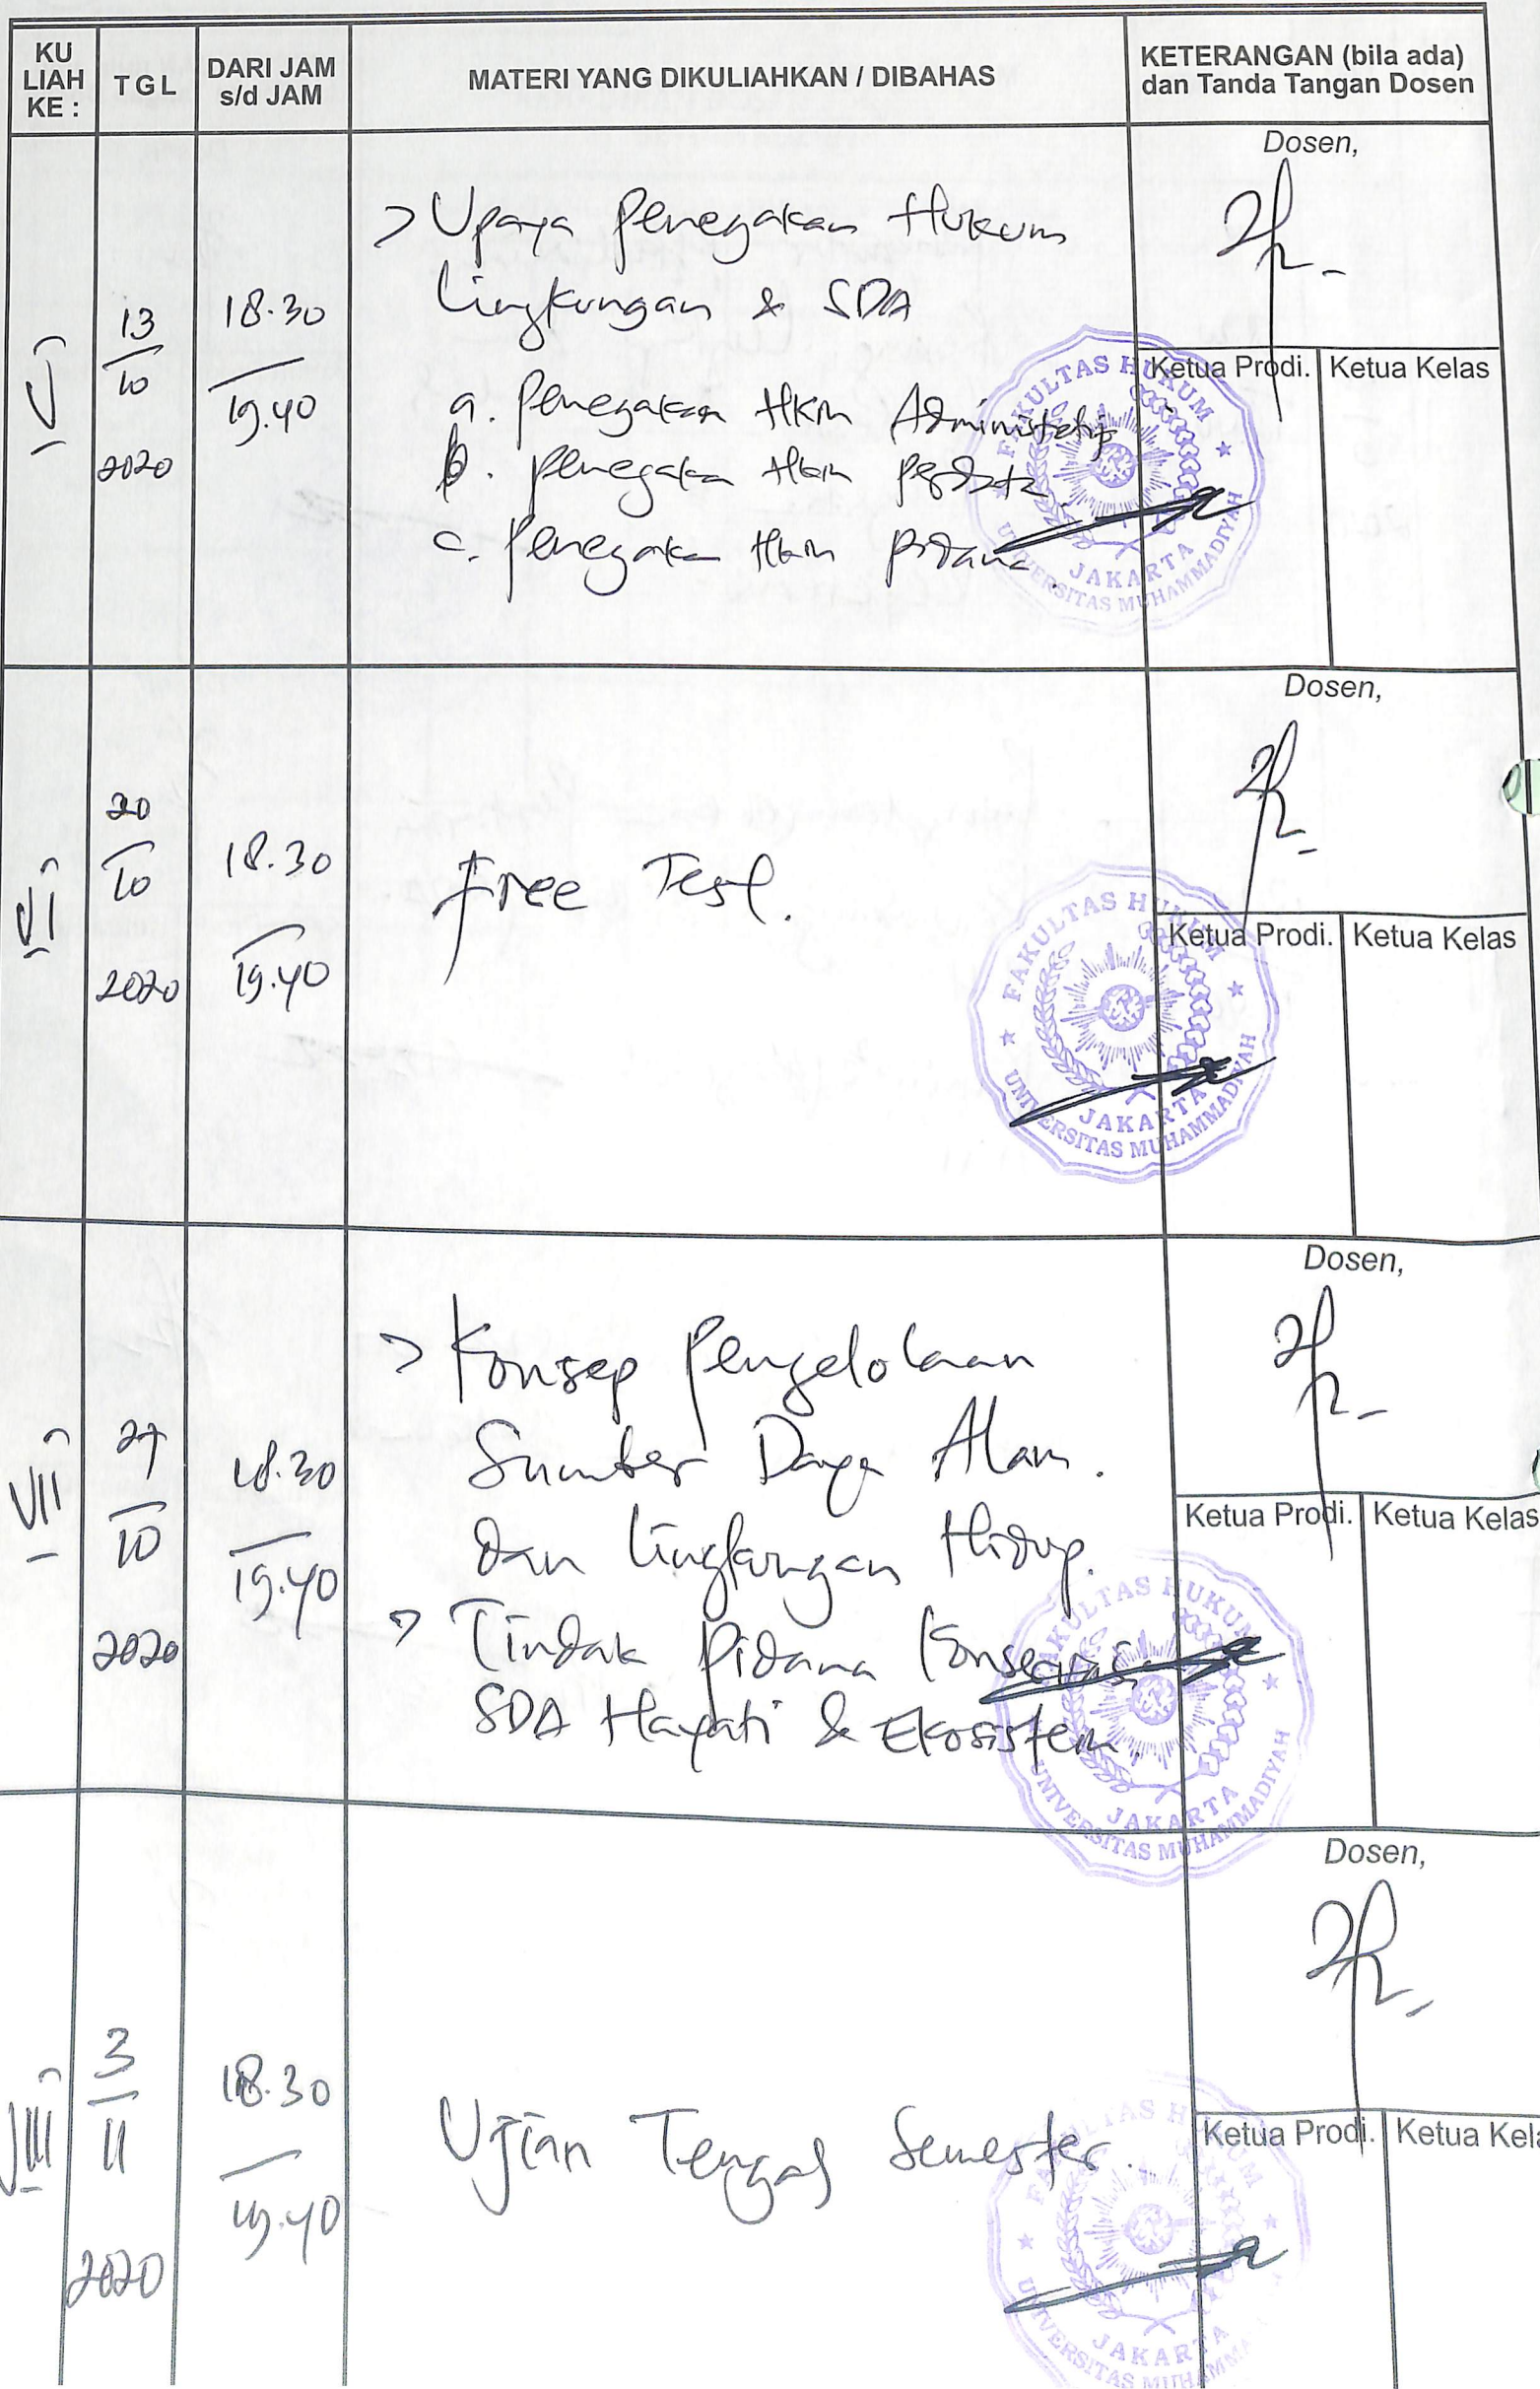 KU LIAH KE :
TGL
DARI JAM s/d JAM
MATERI YANG DIKULIAHKAN / DIBAHAS
KETERANGAN (bila ada) dan Tanda Tangan Dosen
V
13
10
2020
18.30
19.40
> Upaya Penegakan Hukum
Lingkungan & SDA
a. Penegakan Hkm Administratif
b. Penegakan Hkm Perdata
c. Penegakan Hkm Pidana.
Dosen,
Ketua Prodi.
Ketua Kelas
FAKULTAS HUKUM
JAKARTA
UNIVERSITAS MUHAMMADIYAH
VI
20
10
2020
18.30
19.40
Free Test.
Dosen,
Ketua Prodi.
Ketua Kelas
FAKULTAS HUKUM
JAKARTA
UNIVERSITAS MUHAMMADIYAH
VII
27
10
2020
18.30
19.40
> Konsep Pengelolaan
Sumber Daya Alam.
dan Lingkungan Hidup.
> Tindak Pidana Konservasi
SDA Hayati & Ekosistem.
Dosen,
Ketua Prodi.
Ketua Kelas
FAKULTAS HUKUM
JAKARTA
UNIVERSITAS MUHAMMADIYAH
VIII
3
11
2020
18.30
19.40
Ujian Tengah Semester.
Dosen,
Ketua Prodi.
Ketua Kela
FAKULTAS HUKUM
JAKARTA
UNIVERSITAS MUHAMMA